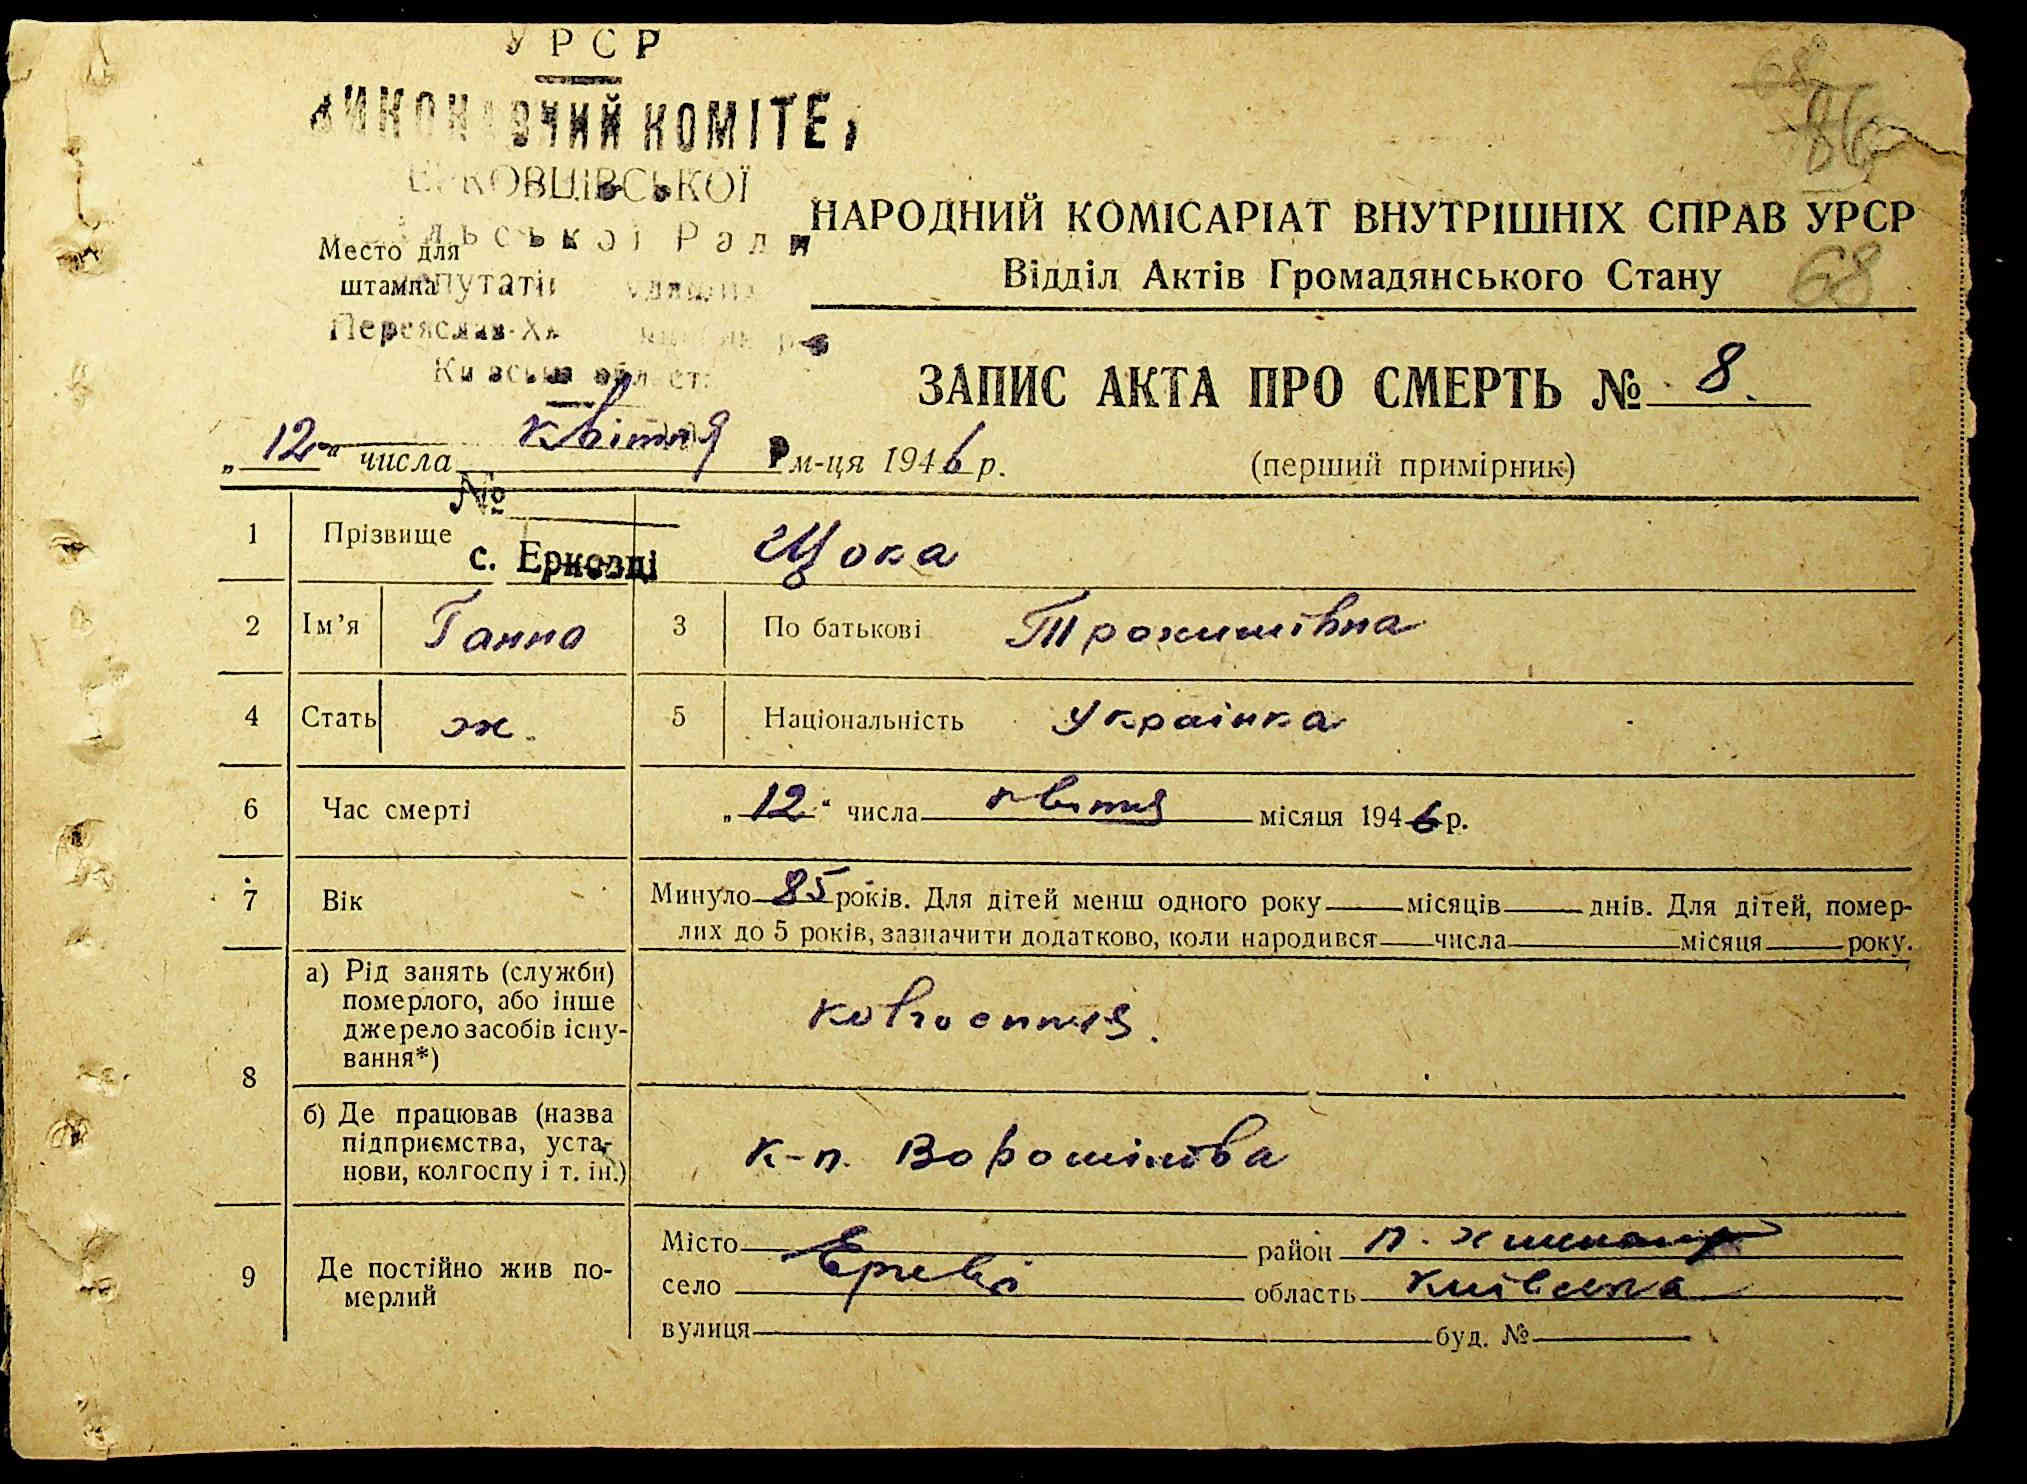 УРСР
ВИКОНАВЧИЙ КОМІТЕТ
ЕРКОВЦІВСЬКОЇ
сільської Ради
Место для
штампа
депутатів трудящих
Переяслав-Хмельницьк. р-н
Київської област.
68
86
68
НАРОДНИЙ КОМІСАРІАТ ВНУТРІШНІХ СПРАВ УРСР
Відділ Актів Громадянського Стану
ЗАПИС АКТА ПРО СМЕРТЬ № 8.
„12“ числа квітня м-ця 1946 р.
(перший примірник)
№
с. Ерковці
1 Прізвище Цока
2 Ім’я Ганна 3 По батькові Трохимівна
4 Стать ж. 5 Національність Українка
6 Час смерті „12“ числа квітня місяця 1946 р.
7 Вік Минуло 85 років. Для дітей менш одного року місяців днів. Для дітей, помер-
лих до 5 років, зазначити додатково, коли народився числа місяця року.
8 а) Рід занять (служби)
померлого, або інше
джерело засобів існу-
вання*)
колгоспниця.
б) Де працював (назва
підприємства, уста-
нови, колгоспу і т. ін.)
к-п. Ворошилова
9 Де постійно жив по-
мерлий
Місто район П. Хмельницьк
село Ерківці область Київська
вулиця буд. №